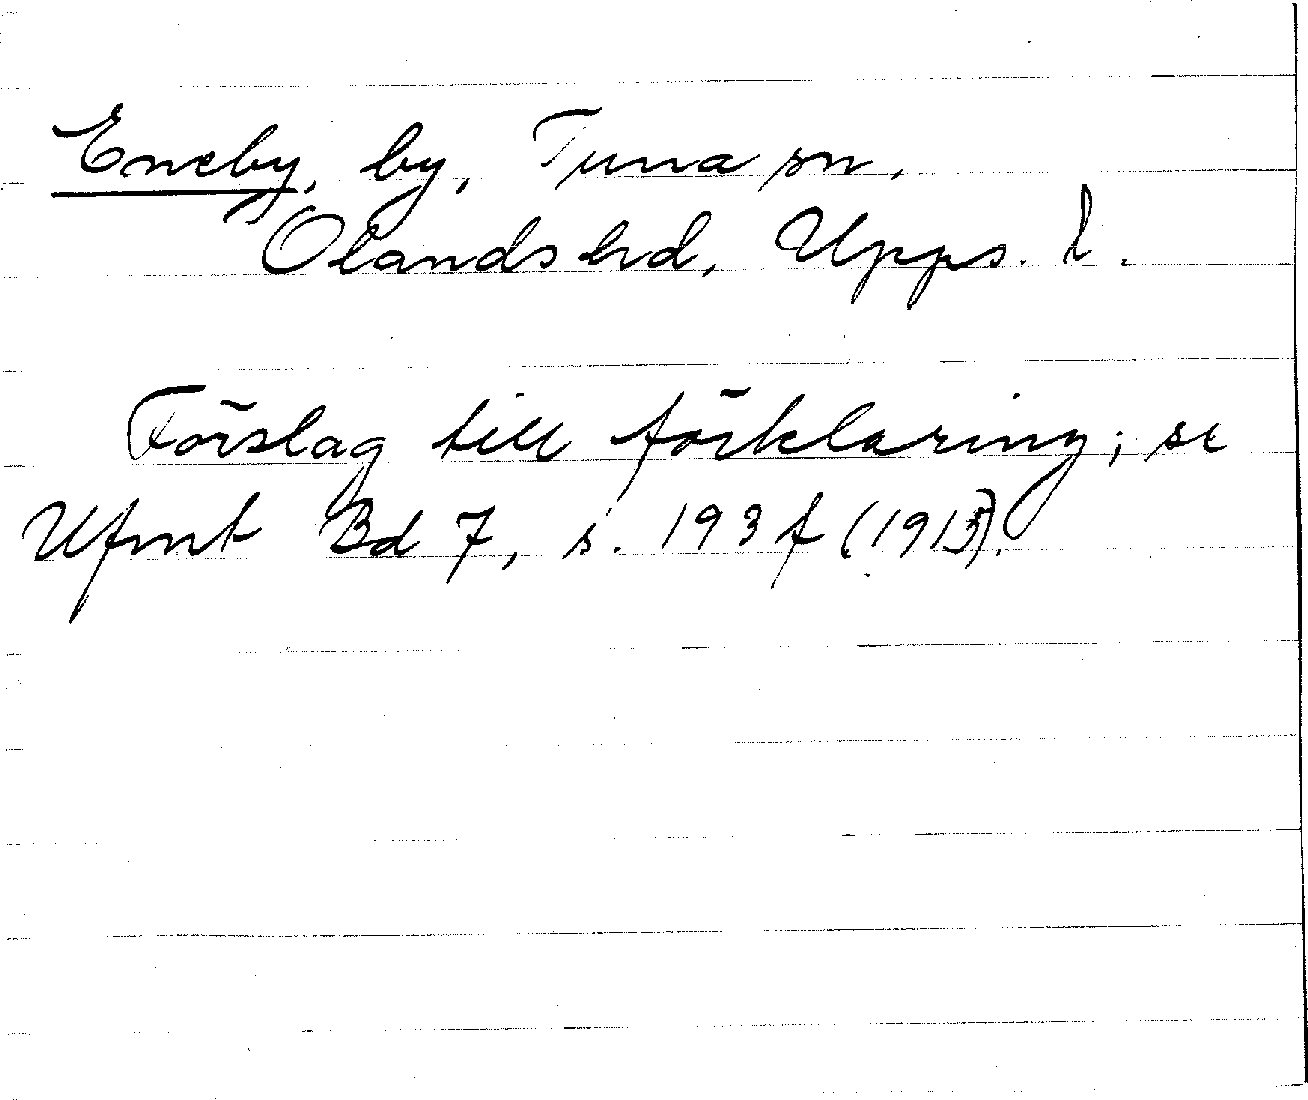 Eneby, by, Tuna sn,
Olands hd, Upps. l.
Förslag till förklaring; se
Ufmt Bd 7, s. 193 f (1915).